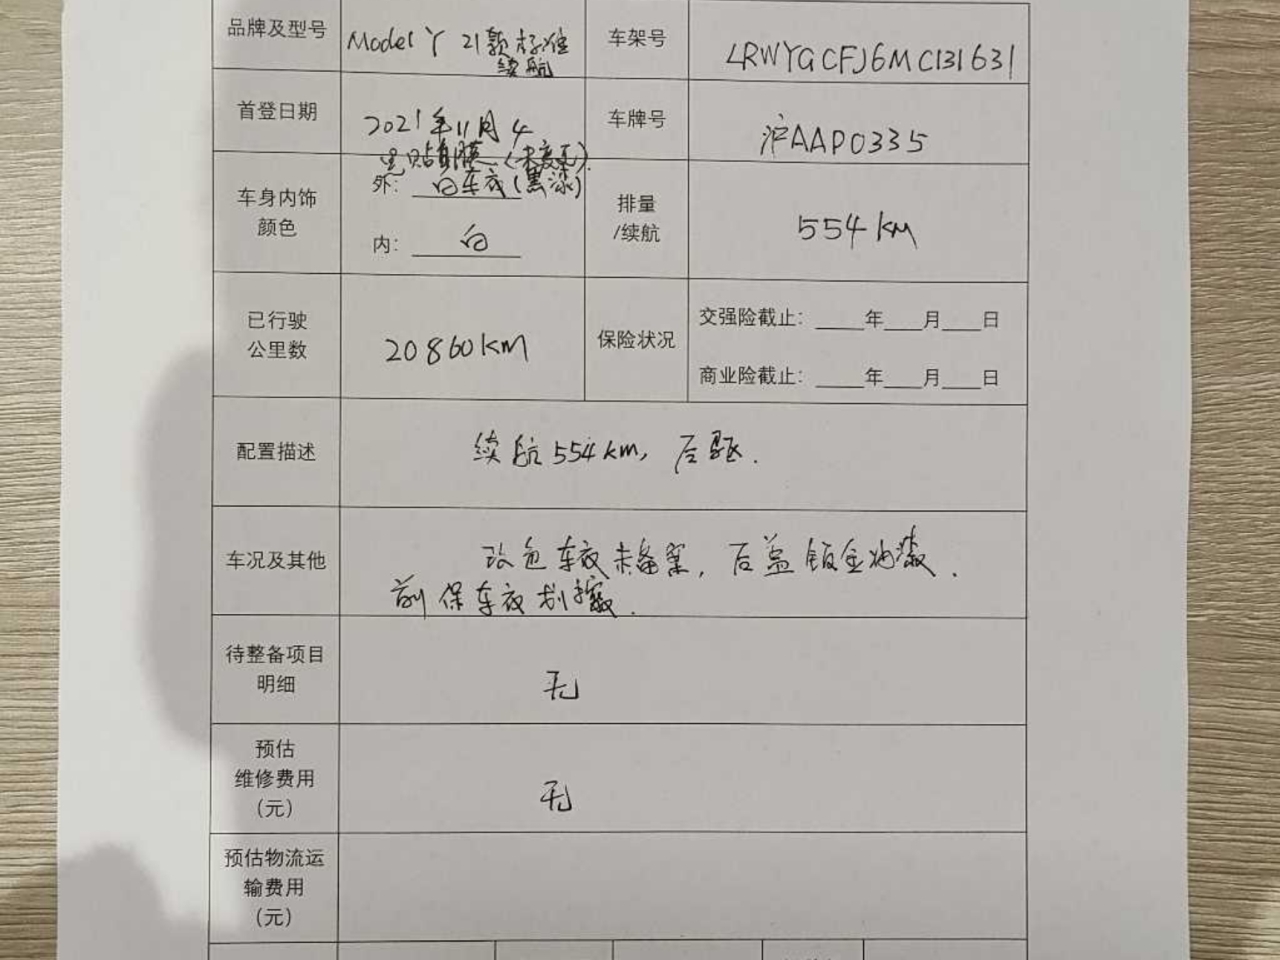 品牌及型号
Model Y 21款标准
续航
车架号
LRWYGCFJ6MC131631
首登日期
2021年11月4
车牌号
沪AAP0335
车身内饰
颜色
黑 贴膜(未变更)
外: 白车衣(黑漆)
内: 白
排量
/续航
554km
已行驶
公里数
20860km
保险状况
交强险截止: ____年____月____日
商业险截止: ____年____月____日
配置描述
续航554km, 后驱.
车况及其他
改色车衣未备案, 后盖钣金油漆.
前保车衣划擦.
待整备项目
明细
无
预估
维修费用
(元)
无
预估物流运
输费用
(元)